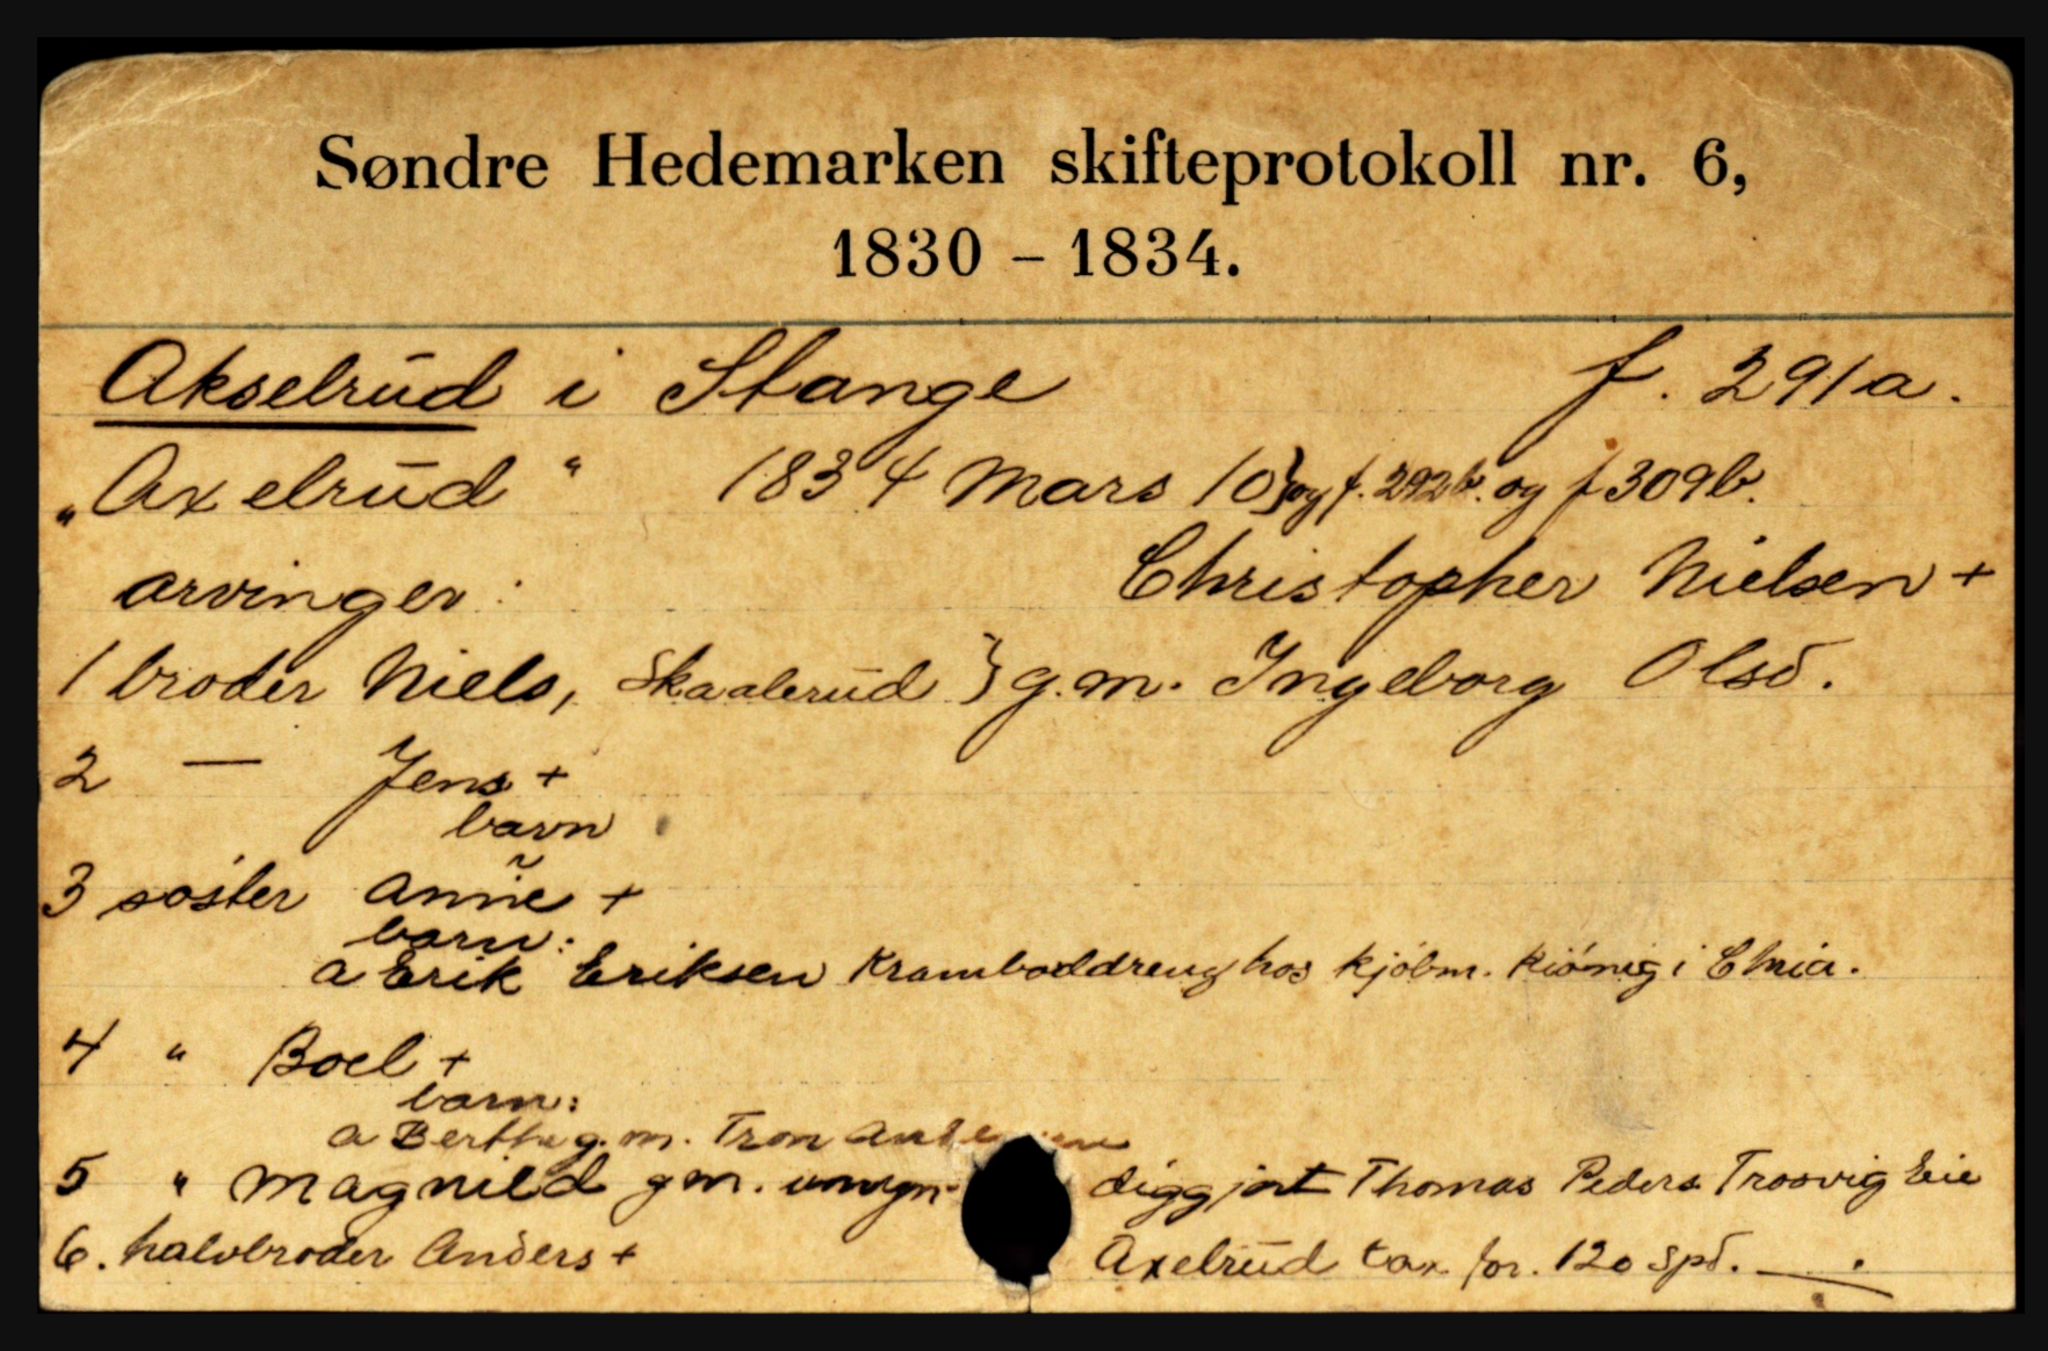 Søndre Hedemarken skifteprotokoll nr. 6,
1830 - 1834.
Akselrud i Stange f. 291a.
„Axelrud“ 1834 Mars 10} og f. 292b. og f 309b.
arvinger: Christopher Nielsen +
1 broder Niels, Skaalerud } g.m. Ingeborg Olsd.
2 — Jens +
barn
3 søster Anne +
barn:
a Erik Eriksen Kramboddreng hos kjøbm. Kiønig i Chria.
4 " Boel +
barn:
a Berthe g.m. Tron
5 " Magnild gm. Thomas Peders. Trosvig Eie
6. halvbroder Anders + Axelrud tax for. 120 spd. —.